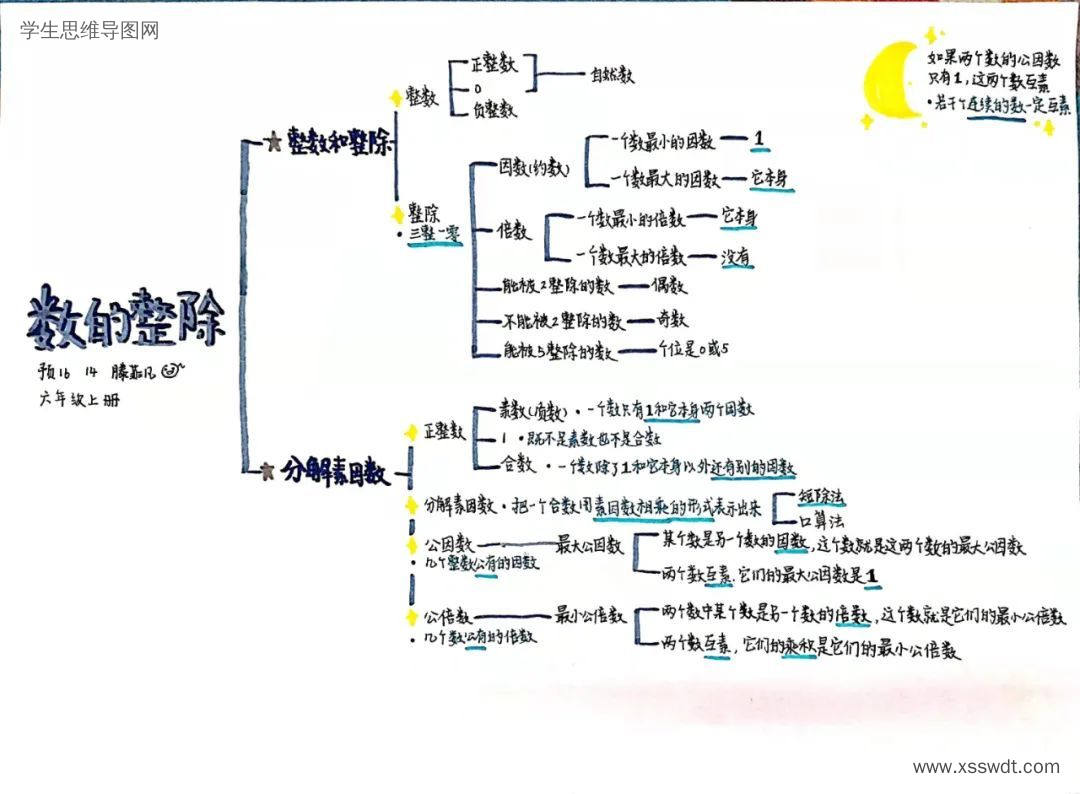 学生思维导图网
如果两个数的公因数
只有1,这两个数互素
·若干个连续的数一定互素
数的整除
预16 14 滕茹凡
六年级上册
整数和整除
整数
正整数
0
负整数
自然数
整除
·三整一零
因数(约数)
一个数最小的因数 1
一个数最大的因数 它本身
倍数
一个数最小的倍数 它本身
一个数最大的倍数 没有
能被2整除的数 偶数
不能被2整除的数 奇数
能被5整除的数 个位是0或5
分解素因数
正整数
素数(质数)·一个数只有1和它本身两个因数
1 ·既不是素数也不是合数
合数 ·一个数除了1和它本身以外还有别的因数
分解素因数·把一个合数用素因数相乘的形式表示出来
短除法
口算法
公因数 最大公因数
·几个整数公有的因数
某个数是另一个数的因数,这个数就是这两个数的最大公因数
两个数互素,它们的最大公因数是1
公倍数 最小公倍数
·几个数公有的倍数
两个数中某个数是另一个数的倍数,这个数就是它们的最小公倍数
两个数互素,它们的乘积是它们的最小公倍数
www.xsswdt.com